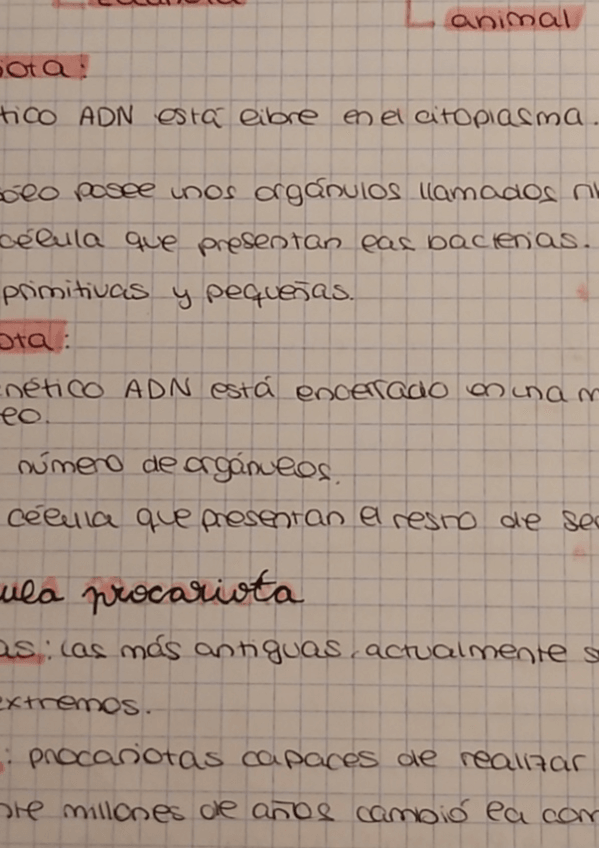 animal
ota:
tico ADN está libre en el citoplasma.
seo posee unos orgánulos llamados
célula que presentan las bacterias.
primitivas y pequeñas.
ota:
nético ADN está encerrado en una m
eo.
número de orgánulos.
célula que presentan el resto de se
ula procariota
as: las más antiguas, actualmente s
extremos.
: procariotas capaces de realizar
millones de años cambió la com